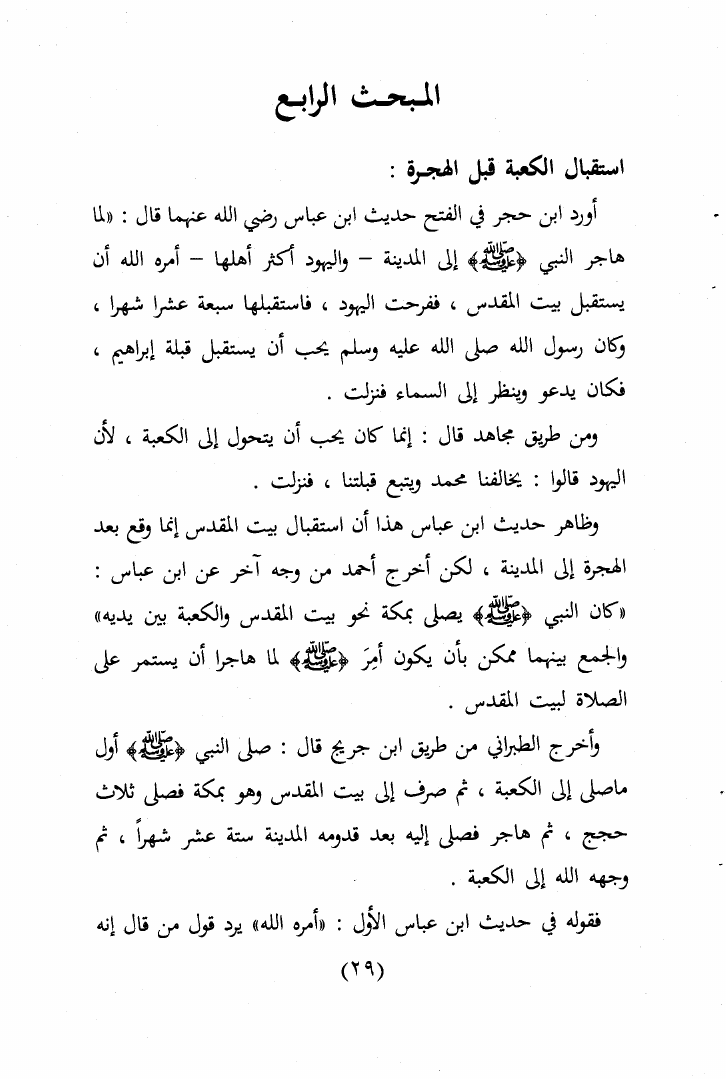 المبحث الرابع
استقبال الكعبة قبل الهجرة :
أورد ابن حجر في الفتح حديث ابن عباس رضي الله عنهما قال : «لما
هاجر النبي ﴿ﷺ﴾ إلى المدينة – واليهود أكثر أهلها – أمره الله أن
يستقبل بيت المقدس ، ففرحت اليهود ، فاستقبلها سبعة عشرا شهرا ،
وكان رسول الله صلى الله عليه وسلم يحب أن يستقبل قبلة إبراهيم ،
فكان يدعو وينظر إلى السماء فنزلت .
ومن طريق مجاهد قال : إنما كان يحب أن يتحول إلى الكعبة ، لأن
اليهود قالوا : يخالفنا محمد ويتبع قبلتنا ، فنزلت .
وظاهر حديث ابن عباس هذا أن استقبال بيت المقدس إنما وقع بعد
الهجرة إلى المدينة ، لكن أخرج أحمد من وجه آخر عن ابن عباس :
«كان النبي ﴿ﷺ﴾ يصلى بمكة نحو بيت المقدس والكعبة بين يديه»
والجمع بينهما ممكن بأن يكون أمِرَ ﴿ﷺ﴾ لما هاجرا أن يستمر على
الصلاة لبيت المقدس .
وأخرج الطبراني من طريق ابن جريج قال : صلى النبي ﴿ﷺ﴾ أول
ماصلى إلى الكعبة ، ثم صرف إلى بيت المقدس وهو بمكة فصلى ثلاث
حجج ، ثم هاجر فصلى إليه بعد قدومه المدينة ستة عشر شهراً ، ثم
وجهه الله إلى الكعبة .
فقوله في حديث ابن عباس الأول : «أمره الله» يرد قول من قال إنه
(٢٩)